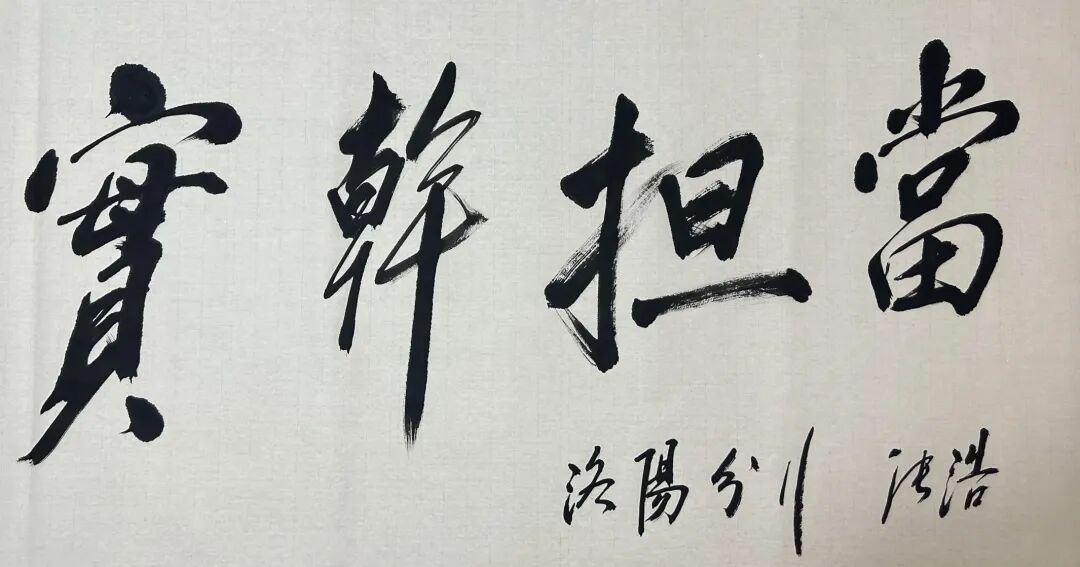 實幹担當
洛陽分行 浩